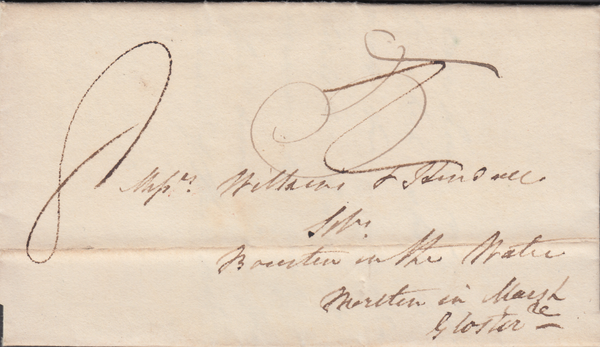 8
Messrs. Wilkins & Kendall
Solrs
Bourton in the Water
Moreton in Marsh
Glosterre